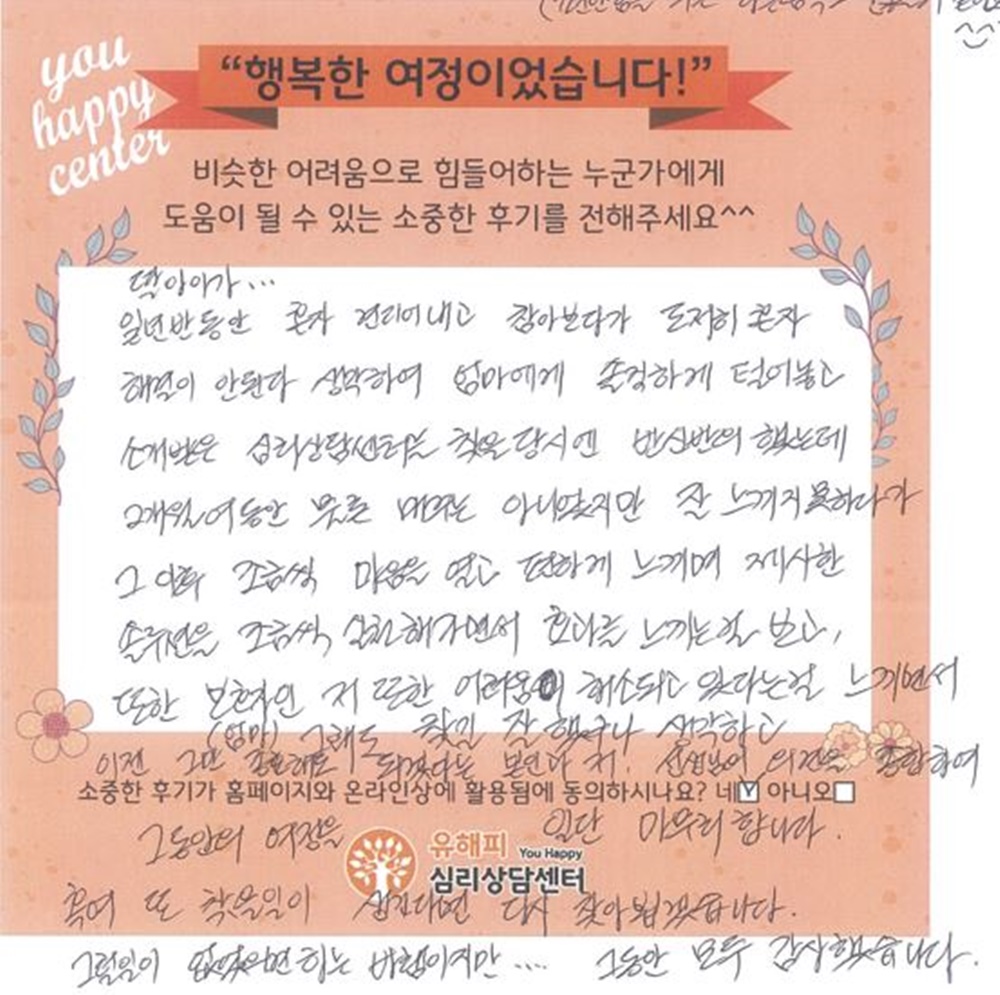 you
happy
center
“행복한 여정이었습니다!”
비슷한 어려움으로 힘들어하는 누군가에게
도움이 될 수 있는 소중한 후기를 전해주세요^^
딸아이가...
일년반동안 혼자 견디어내고 참아보다가 도저히 혼자
해결이 안된다 생각하여 엄마에게 솔직하게 털어놓고
소개받은 심리상담센터를 찾을 당시엔 반신반의 했는데
2개월여동안 물론 매주는 아니었지만 잘 느끼지 못하다가
그 이후 조금씩 마음을 열고 편하게 느끼며 제시한
솔루션을 조금씩 실천해가면서 효과를 느끼는걸 보고,
또한 보호자인 저 또한 어려움이 해소되고 있다는걸 느끼면서
(엄마) 그래도 찾길 잘 했구나 생각하고
이젠 그만 종료해도 되겠다는 본인과 저! 선생님의 의견을 종합하여
소중한 후기가 홈페이지와 온라인상에 활용됨에 동의하시나요? 네☑ 아니오☐
그동안의 여정을 일단 마무리 합니다.
유해피 You Happy
심리상담센터
혹여 또 찾을일이 생긴다면 다시 찾아뵙겠습니다.
그럴일이 없었으면 하는 바램이지만.... 그동안 모두 감사했습니다.